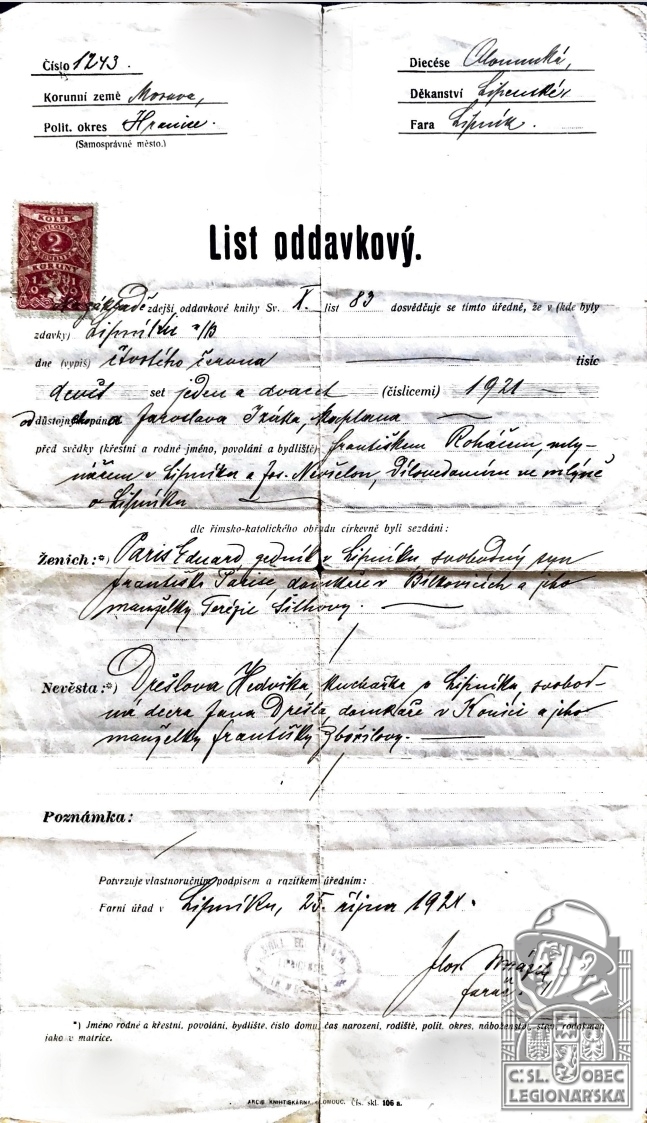 Číslo 1243.
Korunní země Morava,
Polit. okres Hranice.
(Samosprávné město.)
Diecése Olomucká,
Děkanství Lipenské
Fara Lipník.
KOLEK
2
KORUNY
List oddavkový.
Na základě zdejší oddavkové knihy Sv. X. list 83 dosvědčuje se tímto úředně, že v (kde byly
zdavky) Lipníku n/B
dne (vypiš) čtvrtého června tisíc
devět set jeden a dvacet (číslicemi) 1921
od důstojného pána Jaroslava kaplana
před svědky (křestní a rodné jméno, povolání a bydliště) Františkem Roháčem, mly-
nářem v Lipníku a Jos. ve mlýně
v Lipníku
dle římsko-katolického obřadu církevně byli sezdáni:
Ženich:*) Paris Eduard, v Lipníku, svobodný syn
Františka Parise, domkáře v Bílkovicích a jeho
manželky Terezie
Nevěsta:*) Drešlova Hedvika kuchařka v Lipníku, svobod-
ná dcera Jana Drešla, domkáře v Konici a jeho
manželky Františky Zbořilovy.
Poznámka:
Potvrzuje vlastnoručním podpisem a razítkem úředním:
Farní úřad v Lipníku, 25. října 1921.
farář
*) Jméno rodné a křestní, povolání, bydliště, číslo domu, čas narození, rodiště, polit. okres, náboženství, stav, rodákmen
jako v matrice.
ARCIB. KNIHTISKÁRNA OLOMOUC. Čís. skl. 106 a.
Č.SL. OBEC
LEGIONÁŘSKÁ